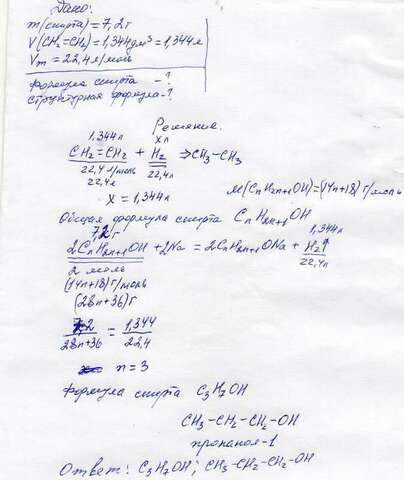 Дано:
m(спирта) = 7,2г
V(CH₂=CH₂) = 1,344дм³ = 1,344л
Vm = 22,4л/моль
формула спирта - ?
структурная формула - ?
Решение.
1,344л   X л
CH₂=CH₂ + H₂ ⇒ CH₃-CH₃
22,4л/моль   22,4л
22,4л
X = 1,344л   M(CnH2n+1OH) = (14n+18) г/моль
Общая формула спирта CnH2n+1OH
7,2г   1,344л
2CnH2n+1OH + 2Na = 2CnH2n+1ONa + H₂↑
2 моль   22,4л
(14n+18) г/моль
(28n+36) г
7,2/28n+36 = 1,344/22,4
n = 3
Формула спирта C₃H₇OH
CH₃-CH₂-CH₂-OH
пропанол-1
Ответ: C₃H₇OH; CH₃-CH₂-CH₂-OH